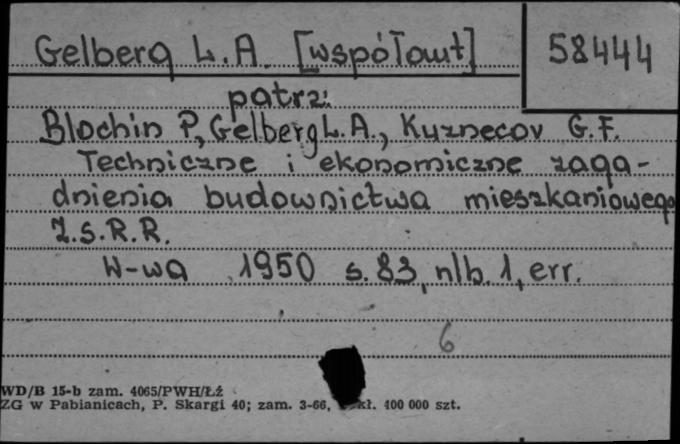 Gelberg L.A. [współaut] 58444
patrz:
Blochin P., Gelberg L.A., Kuznecov G.F.
Techniczne i ekonomiczne zaga-
dnienia budownictwa mieszkaniowego
Z.S.R.R.
W-wa 1950 s. 83, nlb. 1, err.
6
WD/B 15-b zam. 4065/PWH/Łź
ZG w Pabianicach, P. Skargi 40; zam. 3-66, kł. 400 000 szt.